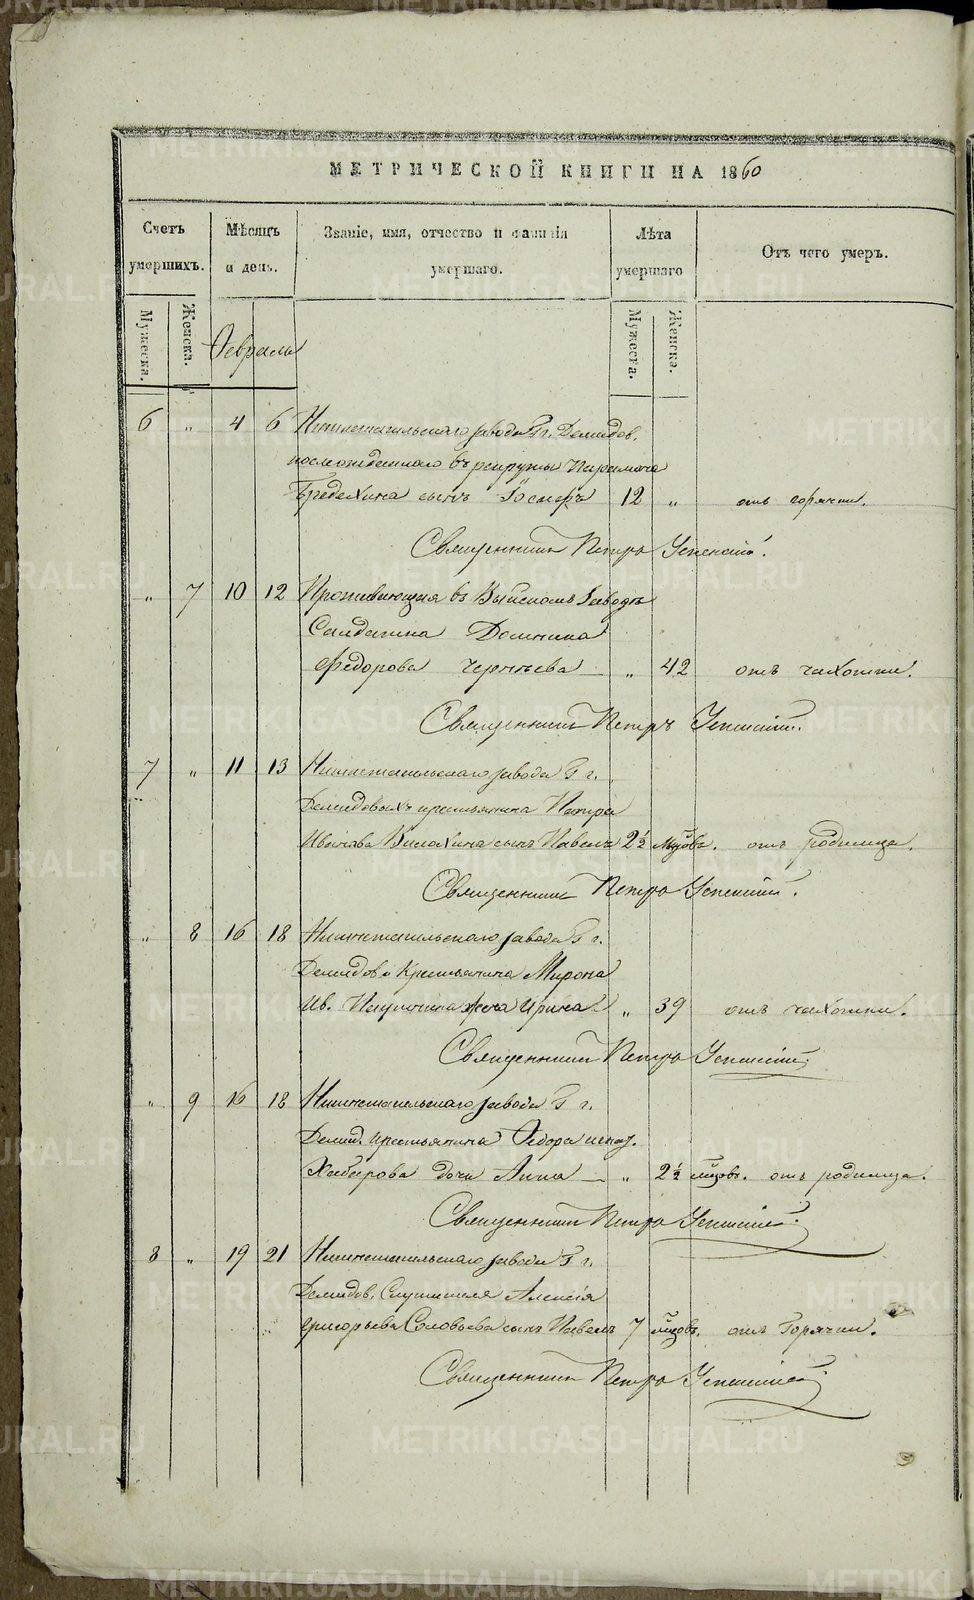 МЕТРИЧЕСКОЙ КНИГИ НА 1860
Счетъ умершихъ.
Мѣсяцъ и день.
Званіе, имя, отчество и фамилія умершаго.
Лѣта умершаго
Отъ чего умеръ.
Мужеска.
Женска.
Мужеска.
Женска.
Февраль
6 „ 4 6 Нижнетагильскаго завода Гг. Демидов.
въ рекруты
сынъ 12 „ отъ горячки.
Священникъ Петръ Успенскій.
„ 7 10 12 Проживающая въ Выйскомъ Заводѣ
Салдатка Домника
Федорова 42 отъ чахотки.
Священникъ Петръ Успенскій.
7 „ 11 13 Нижнетагильскаго завода Гг.
Демидовыхъ крестьянина Петра
Иванова сынъ Павелъ 2½ мѣсяцовъ. отъ родимца.
Священникъ Петръ Успенскій.
„ 8 16 18 Нижнетагильскаго завода Гг.
Демидов. Крестьянина Мирона
Ив. жена Ирина „ 39 отъ чахотки.
Священникъ Петръ Успенскій.
„ 9 16 18 Нижнетагильскаго завода Гг.
Демид. крестьянина Федора
Хабарова дочь Анна „ 2½ мѣсяцовъ. отъ родимца.
Священникъ Петръ Успенскій.
8 „ 19 21 Нижнетагильскаго завода Гг.
Демидов. Служителя Алексія
Григорьева Соловьева сынъ Павелъ 7 мѣсяцовъ. отъ Горячки.
Священникъ Петръ Успенскій
METRIKI.GASO-URAL.RU